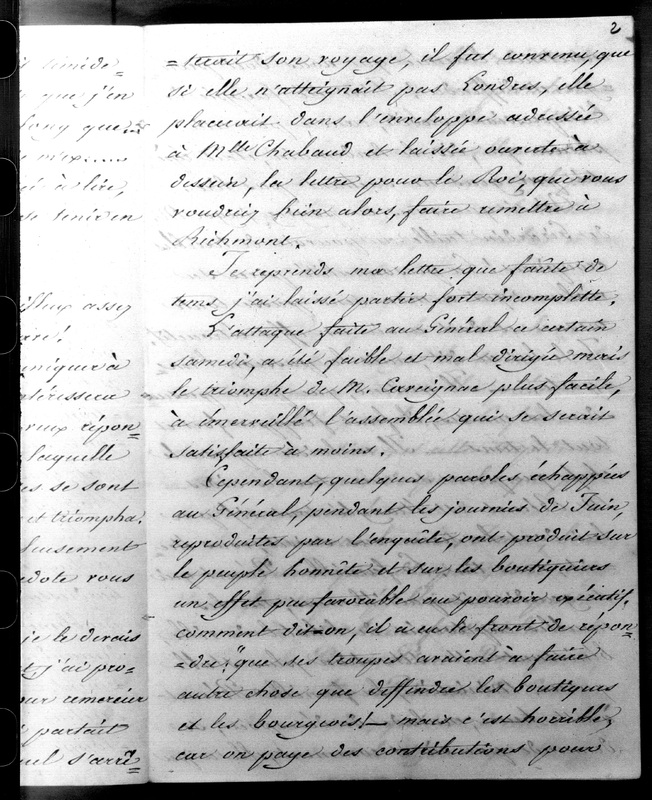 2
t timide=
que j'en
long que
à lire,
te tenir en
assez
uniquer à
ntéresseur
reux répon=
laquelle
es se sont
et triompha.
leusement
dote vous
je le devais
t, j'ai pro=
our
partait
uel s'arrê=
=terait son voyage, il fut convenu, que
si elle n'atteignait pas Londres, elle
placerait dans l'enveloppe adressée
à Mlle Chabaud et laissée ouverte à
dessein, la lettre pour le Roi, que vous
voudriez bien alors, faire remettre à
Richmont.
Je reprends ma lettre que faûte de
tems, j'ai laissé partir fort incomplètte.
L'attaque faite au Général ce certain
samedi, a été faible et mal dirigée mais
le triomphe de M. Caveignac plus facile,
à émerveillé l'assemblée qui se serait
satisfaite à moins.
Cependant, quelques paroles échappées
au Général, pendant les journées de Juin,
reproduites par l'enquête, ont produit sur
le peuple honnête et sur les boutiquiers
un effet peu favorable au pouvoir exécutif.
comment dit-on, il a eu le front de répon=
=dre: "que ses troupes avaient à faire
autre chose que deffendre les boutiques
et les bourgeois!— mais c'est horrible,
car on paye des contributions pour